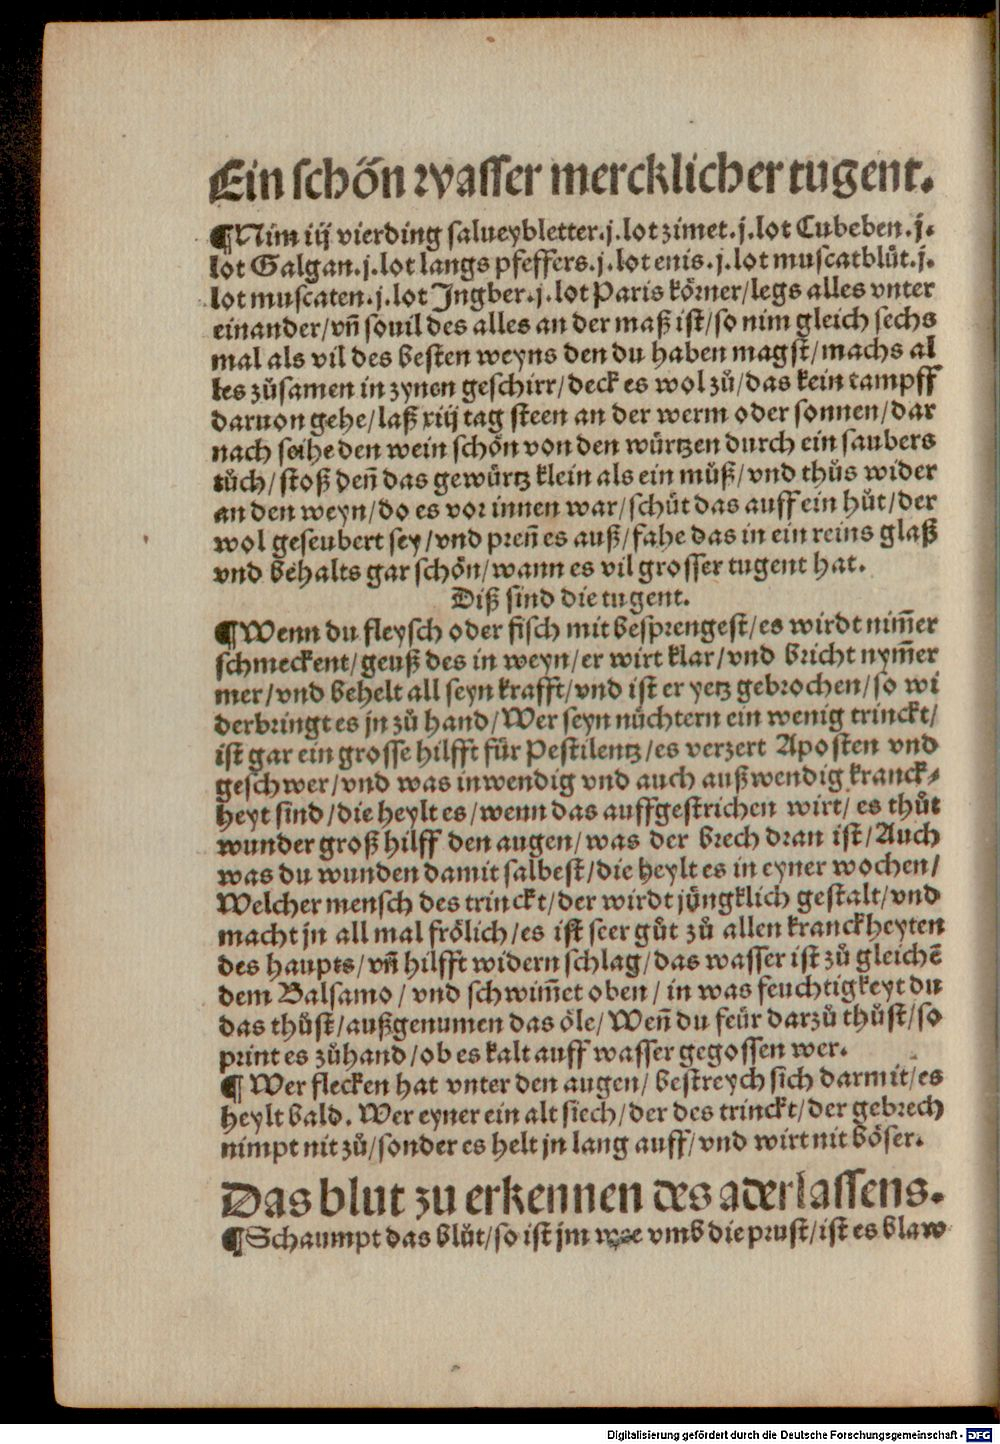 Ein schön wasser mercklicher tugent.
¶ Nim iij vierding salueybletter.j.lot zimet.j.lot Cubeben.j.
lot Galgan.j.lot langs pfeffers.j.lot enis.j.lot muscatblůt.j.
lot muscaten.j.lot Jngber.j.lot Paris körner/legs alles vnter
einander/vn̄ souil des alles an der maß ist/so nim gleich sechs
mal als vil des besten weyns den du haben magst/machs al
les zůsamen in zynen geschirr/deck es wol zů/das kein tampff
daruon gehe/laß xiij tag steen an der werm oder sonnen/dar
nach seihe den wein schön von den würtzen durch ein saubers
tůch/stoß den̄ das gewürtz klein als ein můß/vnd thůs wider
an den weyn/do es vor innen war/schüt das auff ein hůt/der
wol geseubert sey/vnd pren̄ es auß/fahe das in ein reins glaß
vnd behalts gar schön/wann es vil grosser tugent hat.
Diß sind die tugent.
¶ Wenn du fleysch oder fisch mit besprengest/es wirdt nim̄er
schmeckent/geuß des in weyn/er wirt klar/vnd bricht nym̄er
mer/vnd behelt all seyn krafft/vnd ist er yetz gebrochen/so wi
derbringt es jn zů hand/Wer seyn nůchtern ein wenig trinckt/
ist gar ein grosse hilfft für Pestilentz/es verzert Aposten vnd
geschwer/vnd was inwendig vnd auch außwendig kranck⸗
heyt sind/die heylt es/wenn das auffgestrichen wirt/es thůt
wunder groß hilff den augen/was der brech dran ist/Auch
was du wunden damit salbest/die heylt es in eyner wochen/
Welcher mensch des trinckt/der wirdt jüngklich gestalt/vnd
macht jn all mal frölich/es ist seer gůt zů allen kranckheyten
des haupts/vn̄ hilfft widern schlag/das wasser ist zů gleichē
dem Balsamo/vnd schwim̄et oben/in was feuchtigkeyt du
das thůst/außgenumen das öle/Wen̄ du feür darzů thůst/so
print es zůhand/ob es kalt auff wasser gegossen wer.
¶ Wer flecken hat vnter den augen/bestreych sich darmit/es
heylt bald. Wer eyner ein alt siech/der des trinckt/der gebrech
nimpt nit zů/sonder es helt jn lang auff/vnd wirt nit böser.
Das blut zu erkennen des aderlassens.
¶ Schaumpt das blůt/so ist jm wee vmb die prust/ist es blaw
Digitalisierung gefördert durch die Deutsche Forschungsgemeinschaft - DFG